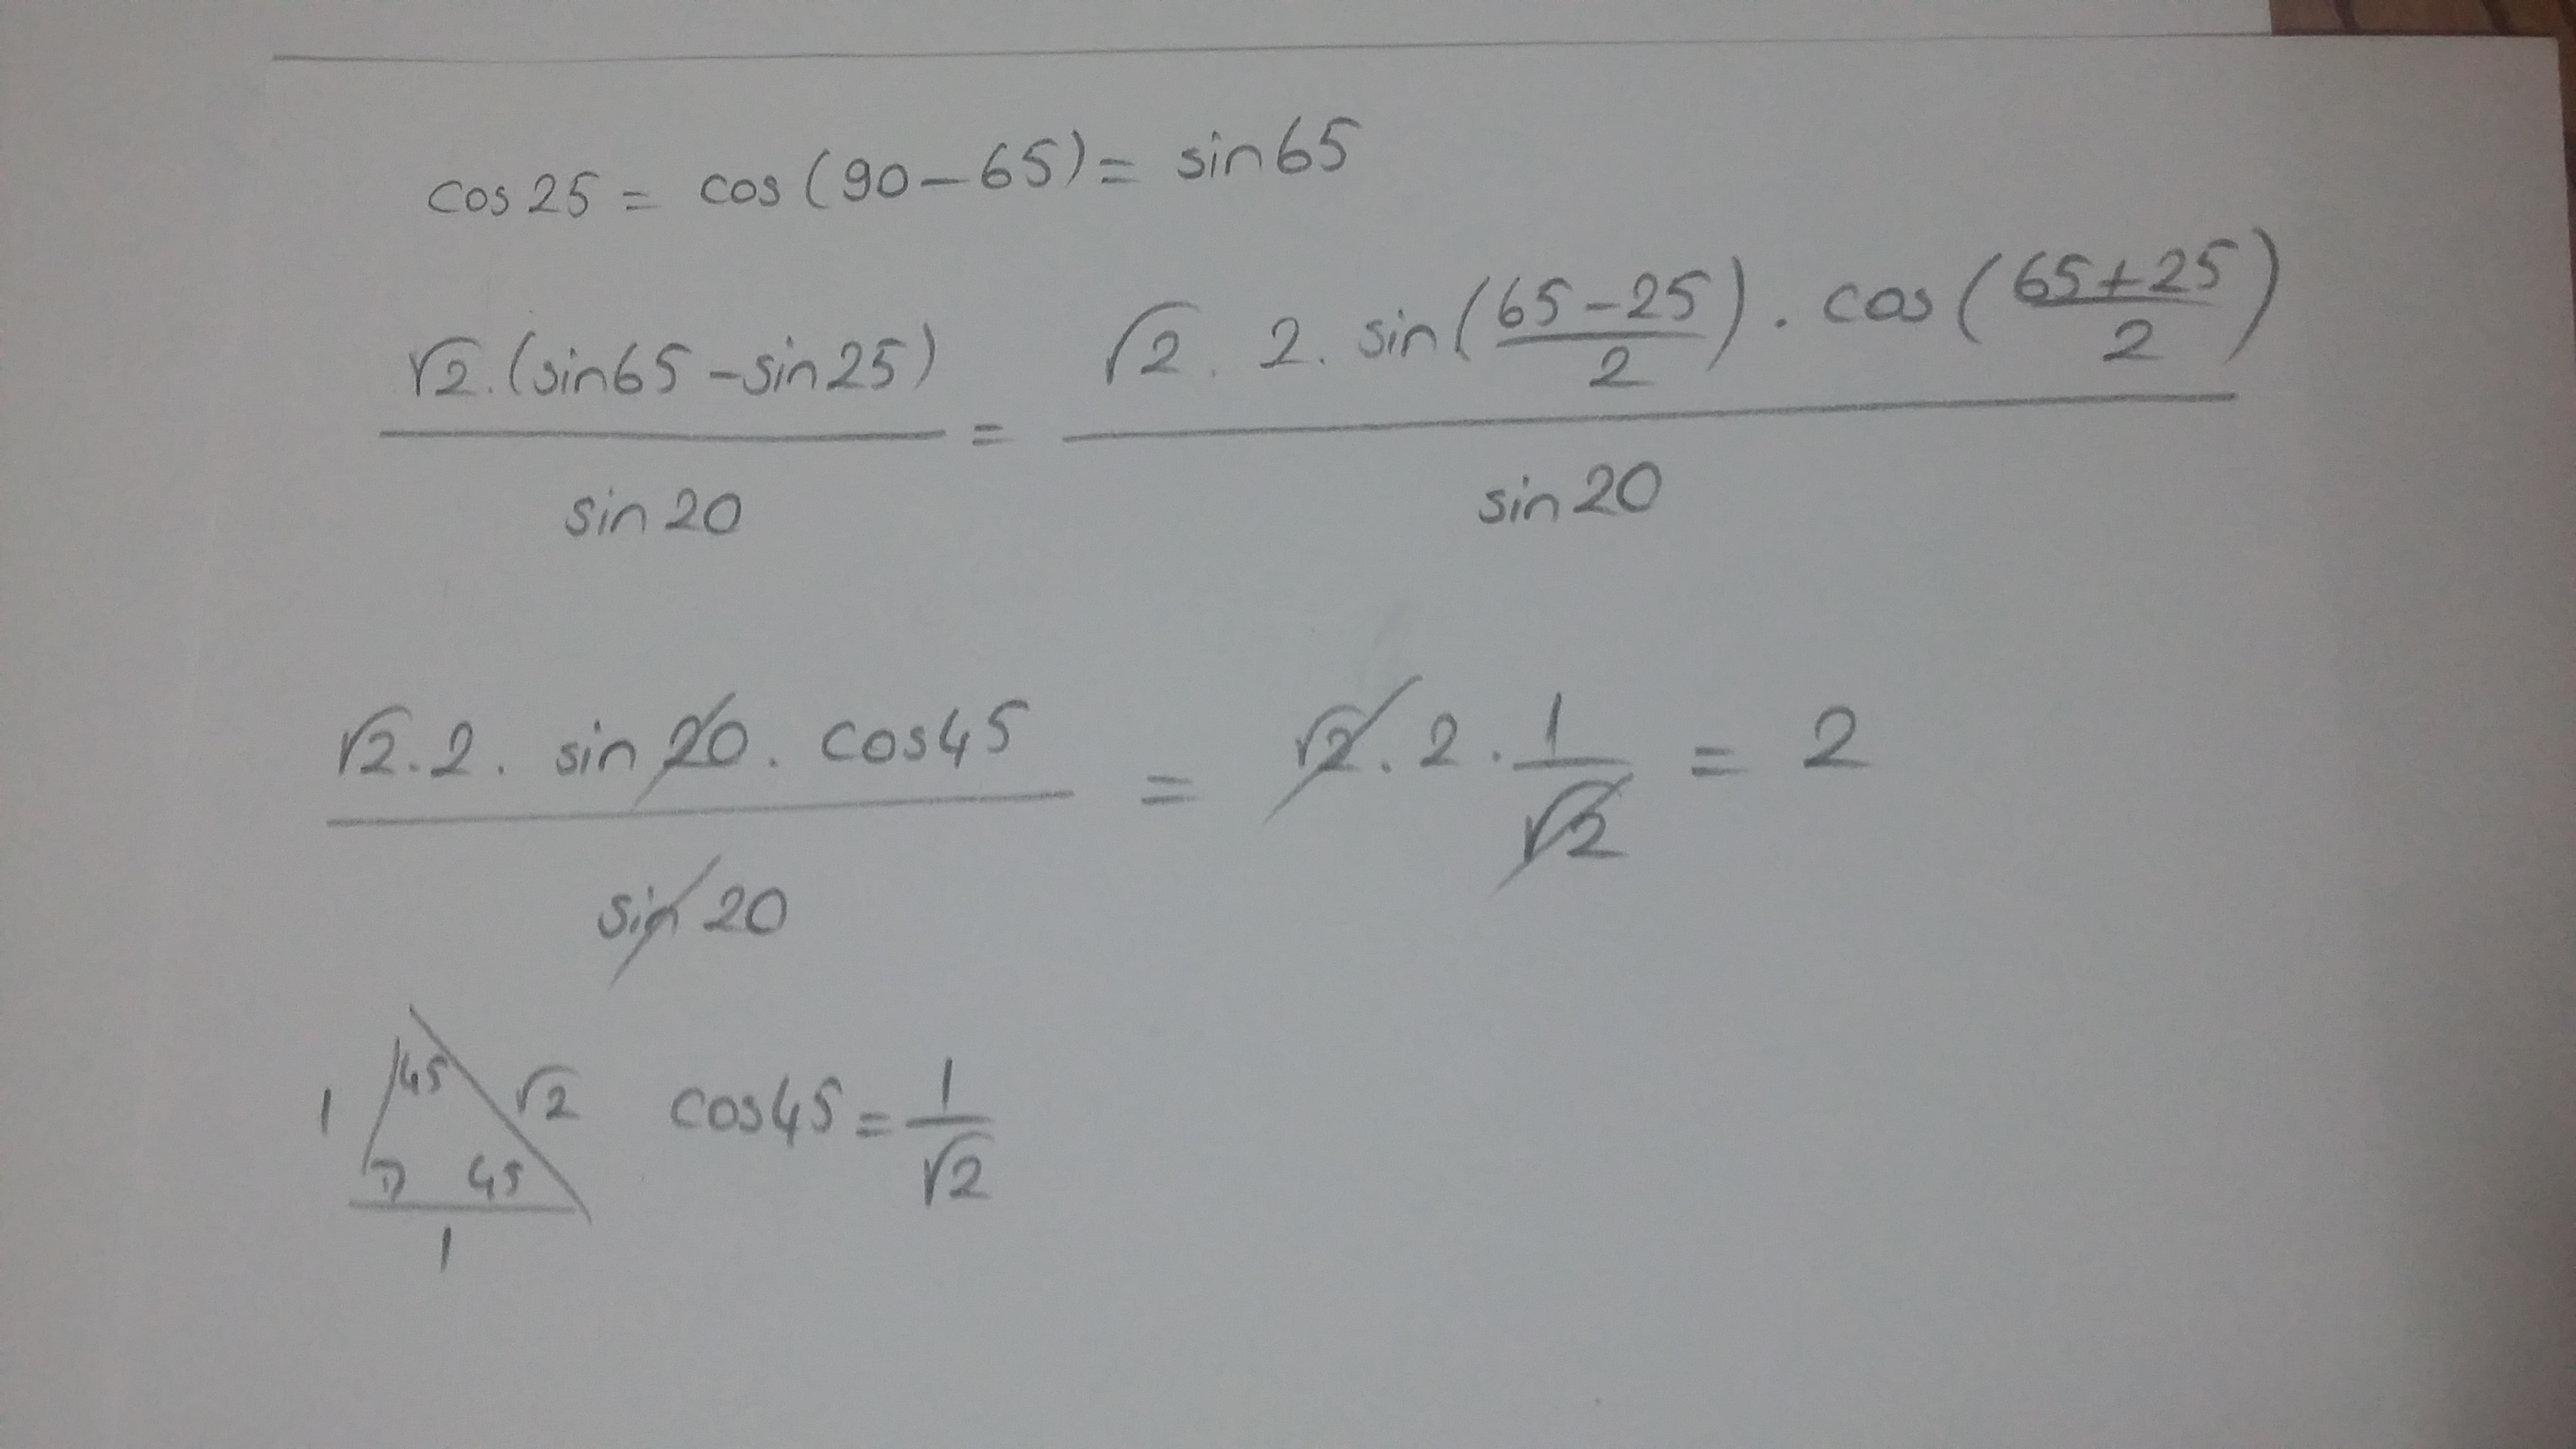 cos25 = cos(90-65) = sin65
√2.(sin65-sin25) / sin20 = √2. 2. sin((65-25)/2) . cos((65+25)/2) / sin20
√2.2. sin20. cos45 / sin20 = √2. 2. 1/√2 = 2
1 45 √2 45 1
cos45 = 1/√2